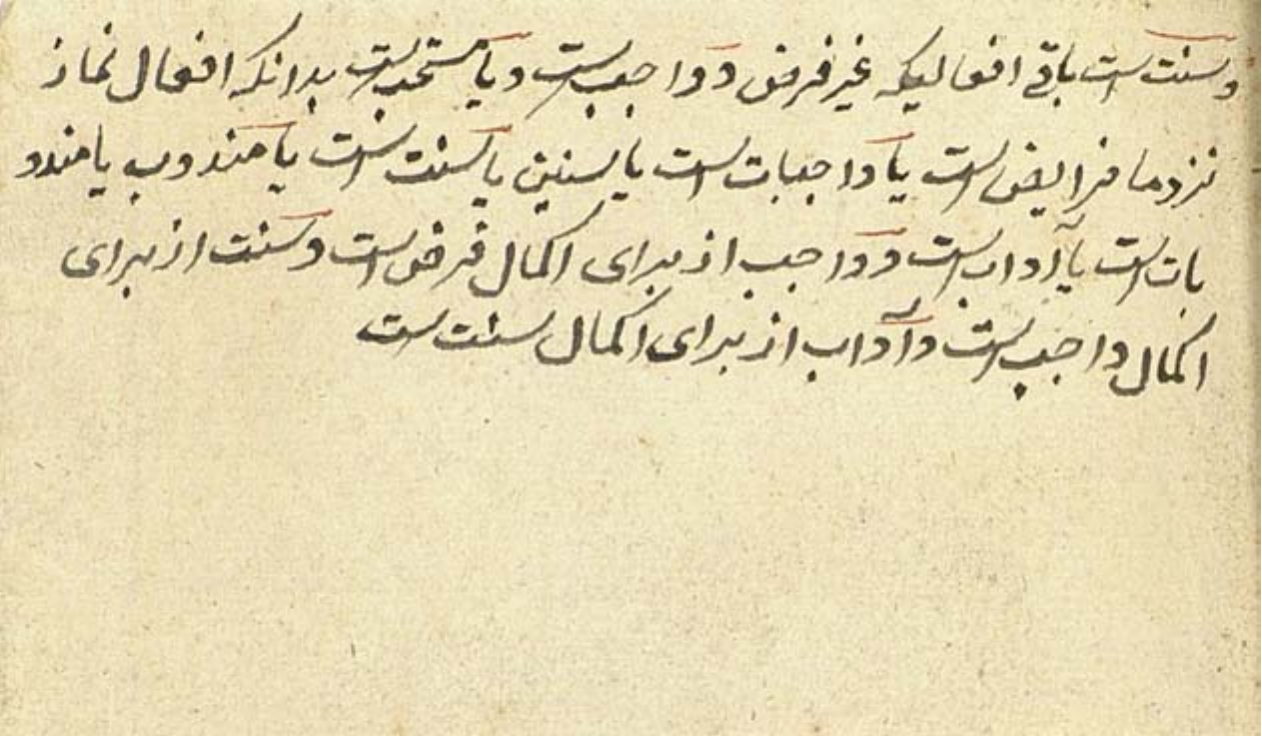 و سنت است باقی افعالیکه غیر فرض و واجب است و یا مستحب است بدانکه افعال نماز
نزد ما فرایض است یا واجبات است یا سنن یا سنت است یا مندوب یا مندو
بات است یا آداب است و واجب از برای اکمال فرض است و سنت از برای
اکمال واجب است و آداب از برای اکمال سنت است